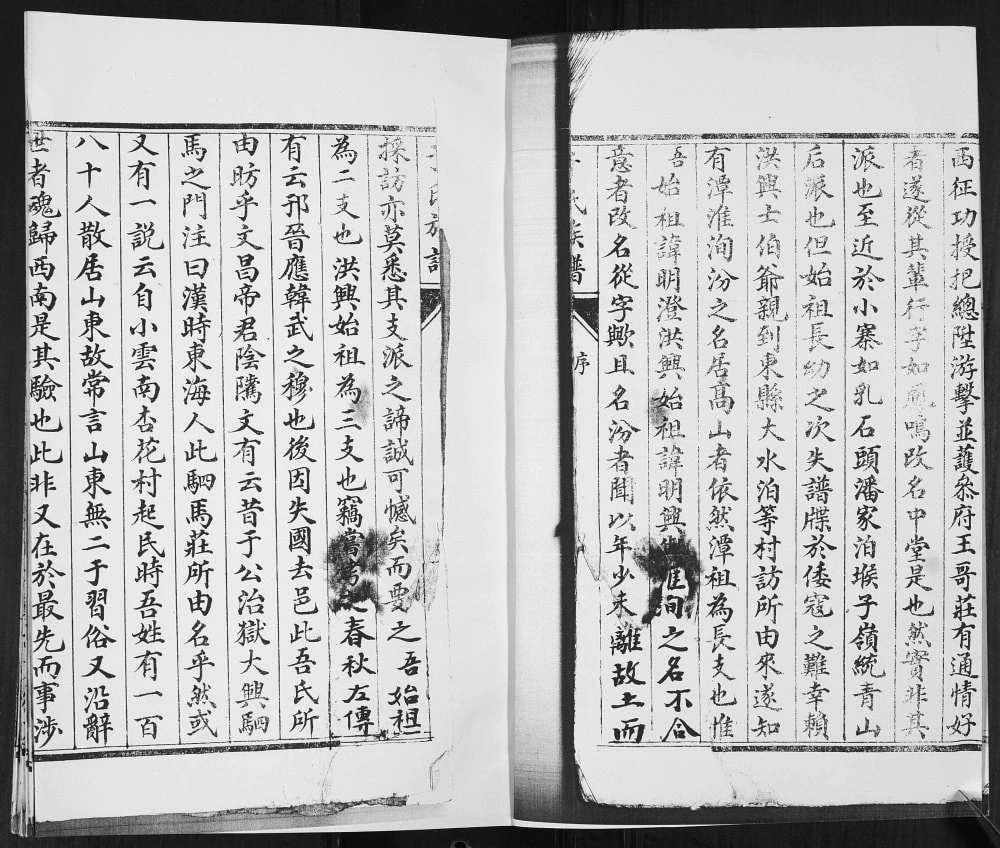 西征功授把總陞游擊並護叅府王哥莊有通情好
者遂從其輩行字如鳴改名中堂是也然實非其
派也至近於小寨如乳石頭潘家泊堠子嶺統青山
后派也但始祖長幼之次失譜牒於倭寇之難幸賴
洪興士伯爺親到東縣大水泊等村訪所由來遂知
有潭淮洵汾之名居高山者依然潭祖為長支也惟
吾始祖諱明澄洪興始祖諱明興淮洵之名不合
意者改名從字歟且名汾者聞以年少未離故土而
氏族譜
序
氏族譜
採訪亦莫悉其支派之諦誠可憾矣而要之吾始祖
為二支也洪興始祖為三支也竊嘗考之春秋左傳
有云邘晉應韓武之穆也後因失國去邑此吾氏所
由昉乎文昌帝君陰騭文有云昔于公治獄大興駟
馬之門注曰漢時東海人此駟馬莊所由名乎然或
又有一説云自小雲南杏花村起民時吾姓有一百
八十人散居山東故常言山東無二于習俗又沿辭
世者魂歸西南是其驗也此非又在於最先而事涉